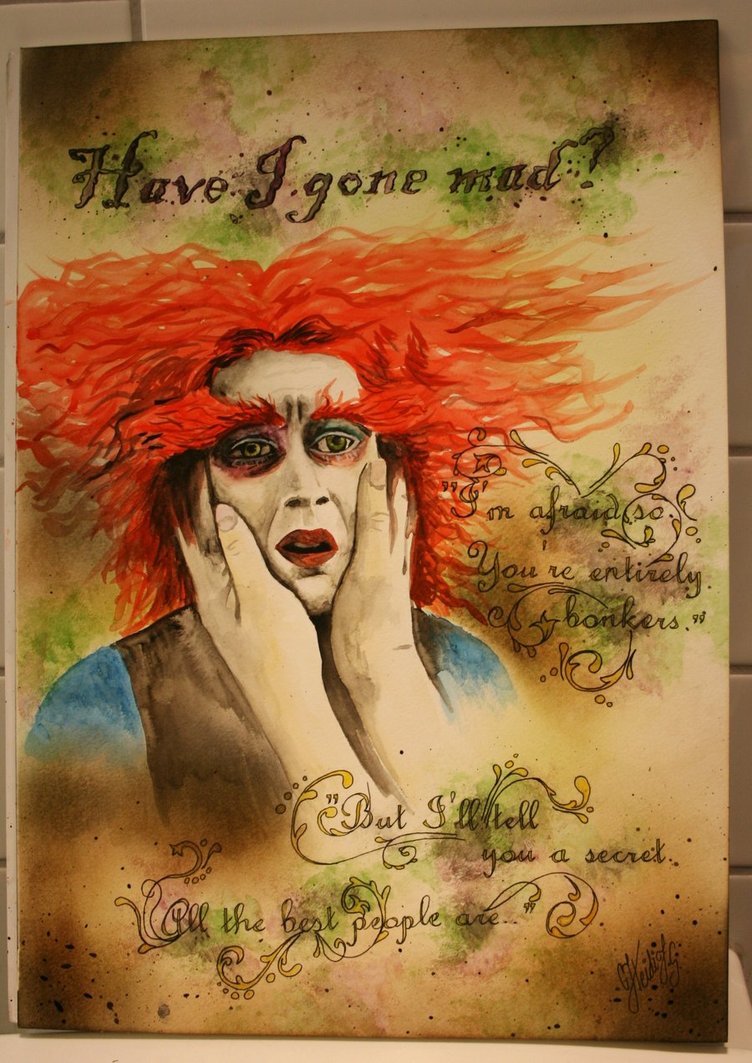 Have I gone mad?
"I'm afraid so.
You're entirely
bonkers."
"But I'll tell
you a secret.
All the best people are..."